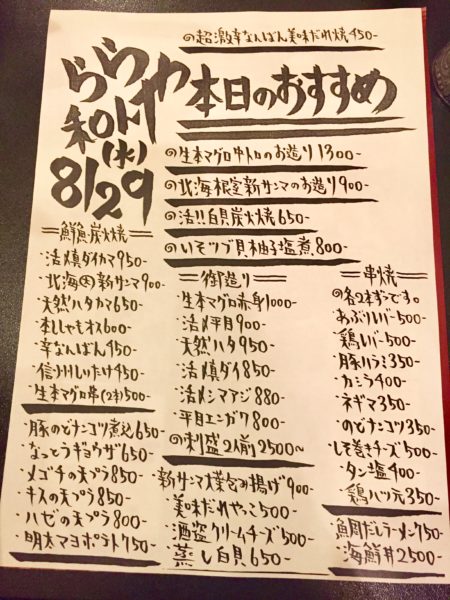 ◎超激辛なんばん美味だれ焼450-
ららや
和トイ
(水)
8/29
本日のおすすめ
◎生本マグロ中トロのお造り1300-
◎北海根室新サンマのお造り900-
◎活!!白貝炭火焼650-
◎いそツブ貝柚子塩煮.800-
=鮮魚炭火焼=
・活〆真ダイカマ950-
・北海 新サンマ900-
・天然ハタカマ650-
・本ししゃもオス600-
・辛なんばん450-
・信州しいたけ450-
・生本マグロ串(2本)500-
・豚のどナンコツ煮込650-
・なっとうギョウザ650-
・メゴチの天プラ850-
・キスの天プラ850-
・ハゼの天プラ800-
・明太マヨポテト750-
=御造り=
・生本マグロ赤身1000-
・活〆平目900-
・天然ハタ950-
・活〆真ダイ850-
・活〆シマアジ880-
・平目エンガワ800-
◎刺盛2人前2500〜
・新サンマ大葉包み揚げ900-
・美味だれやっこ500-
・酒盗クリームチーズ500-
・蒸し白貝650-
=串焼=
◎各2本ずつです。
・あぶりレバー500-
・鶏レバー500-
・豚ハラミ350-
・カシラ400-
・ネギマ350-
・のどナンコツ350-
・しそ巻きチーズ500-
・タン塩400-
・鶏ハツ元350-
・魚周だしラーメン750-
・海鮮丼2500-